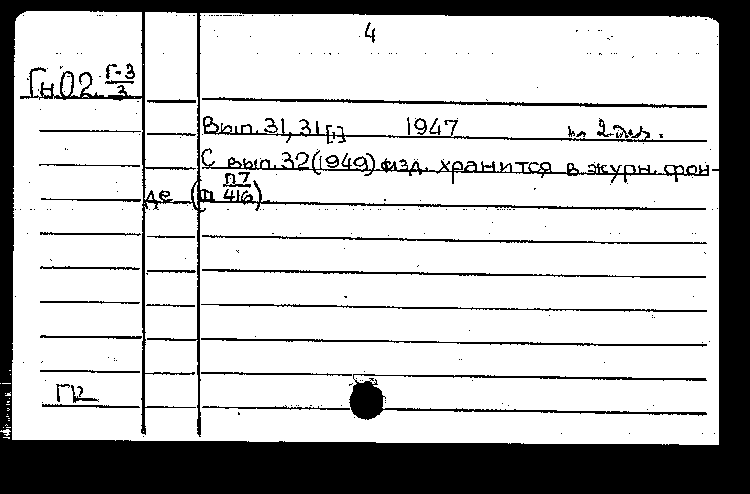 4
Гн02 Г-3/3
Вып. 31, 31[1] 1947 по 2 экз.
С вып. 32 (1949) изд. хранится в журн. фон-
де (П7/416)